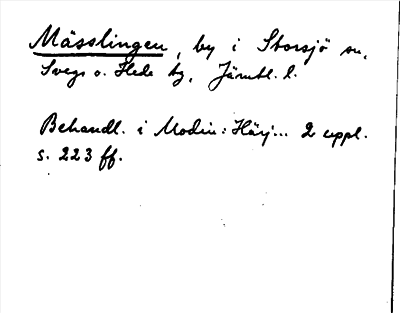 Mässlingen, by i Storsjö sn,
Svegs o. Hede tg, Jämtl. l.
Behandl. i Modin: Härj... 2 uppl.
s. 223 ff.